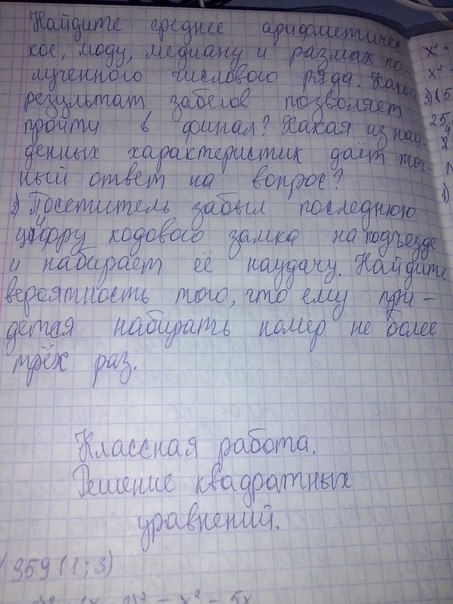 Найдите среднее арифметичес-
кое, моду, медиану и размах по
лученного числового ряда. Какой
результат забегов позволяет
пройти в финал? Какая из най
денных характеристик даёт точ
ный ответ на вопрос?
2) Посетитель забыл последнюю
цифру кодового замка на подъезде
и набирает её наудачу. Найдите
вероятность того, что ему при-
дется набирать номер не более
трёх раз.
Классная работа.
Решение квадратных
уравнений.
959 (1; 3)